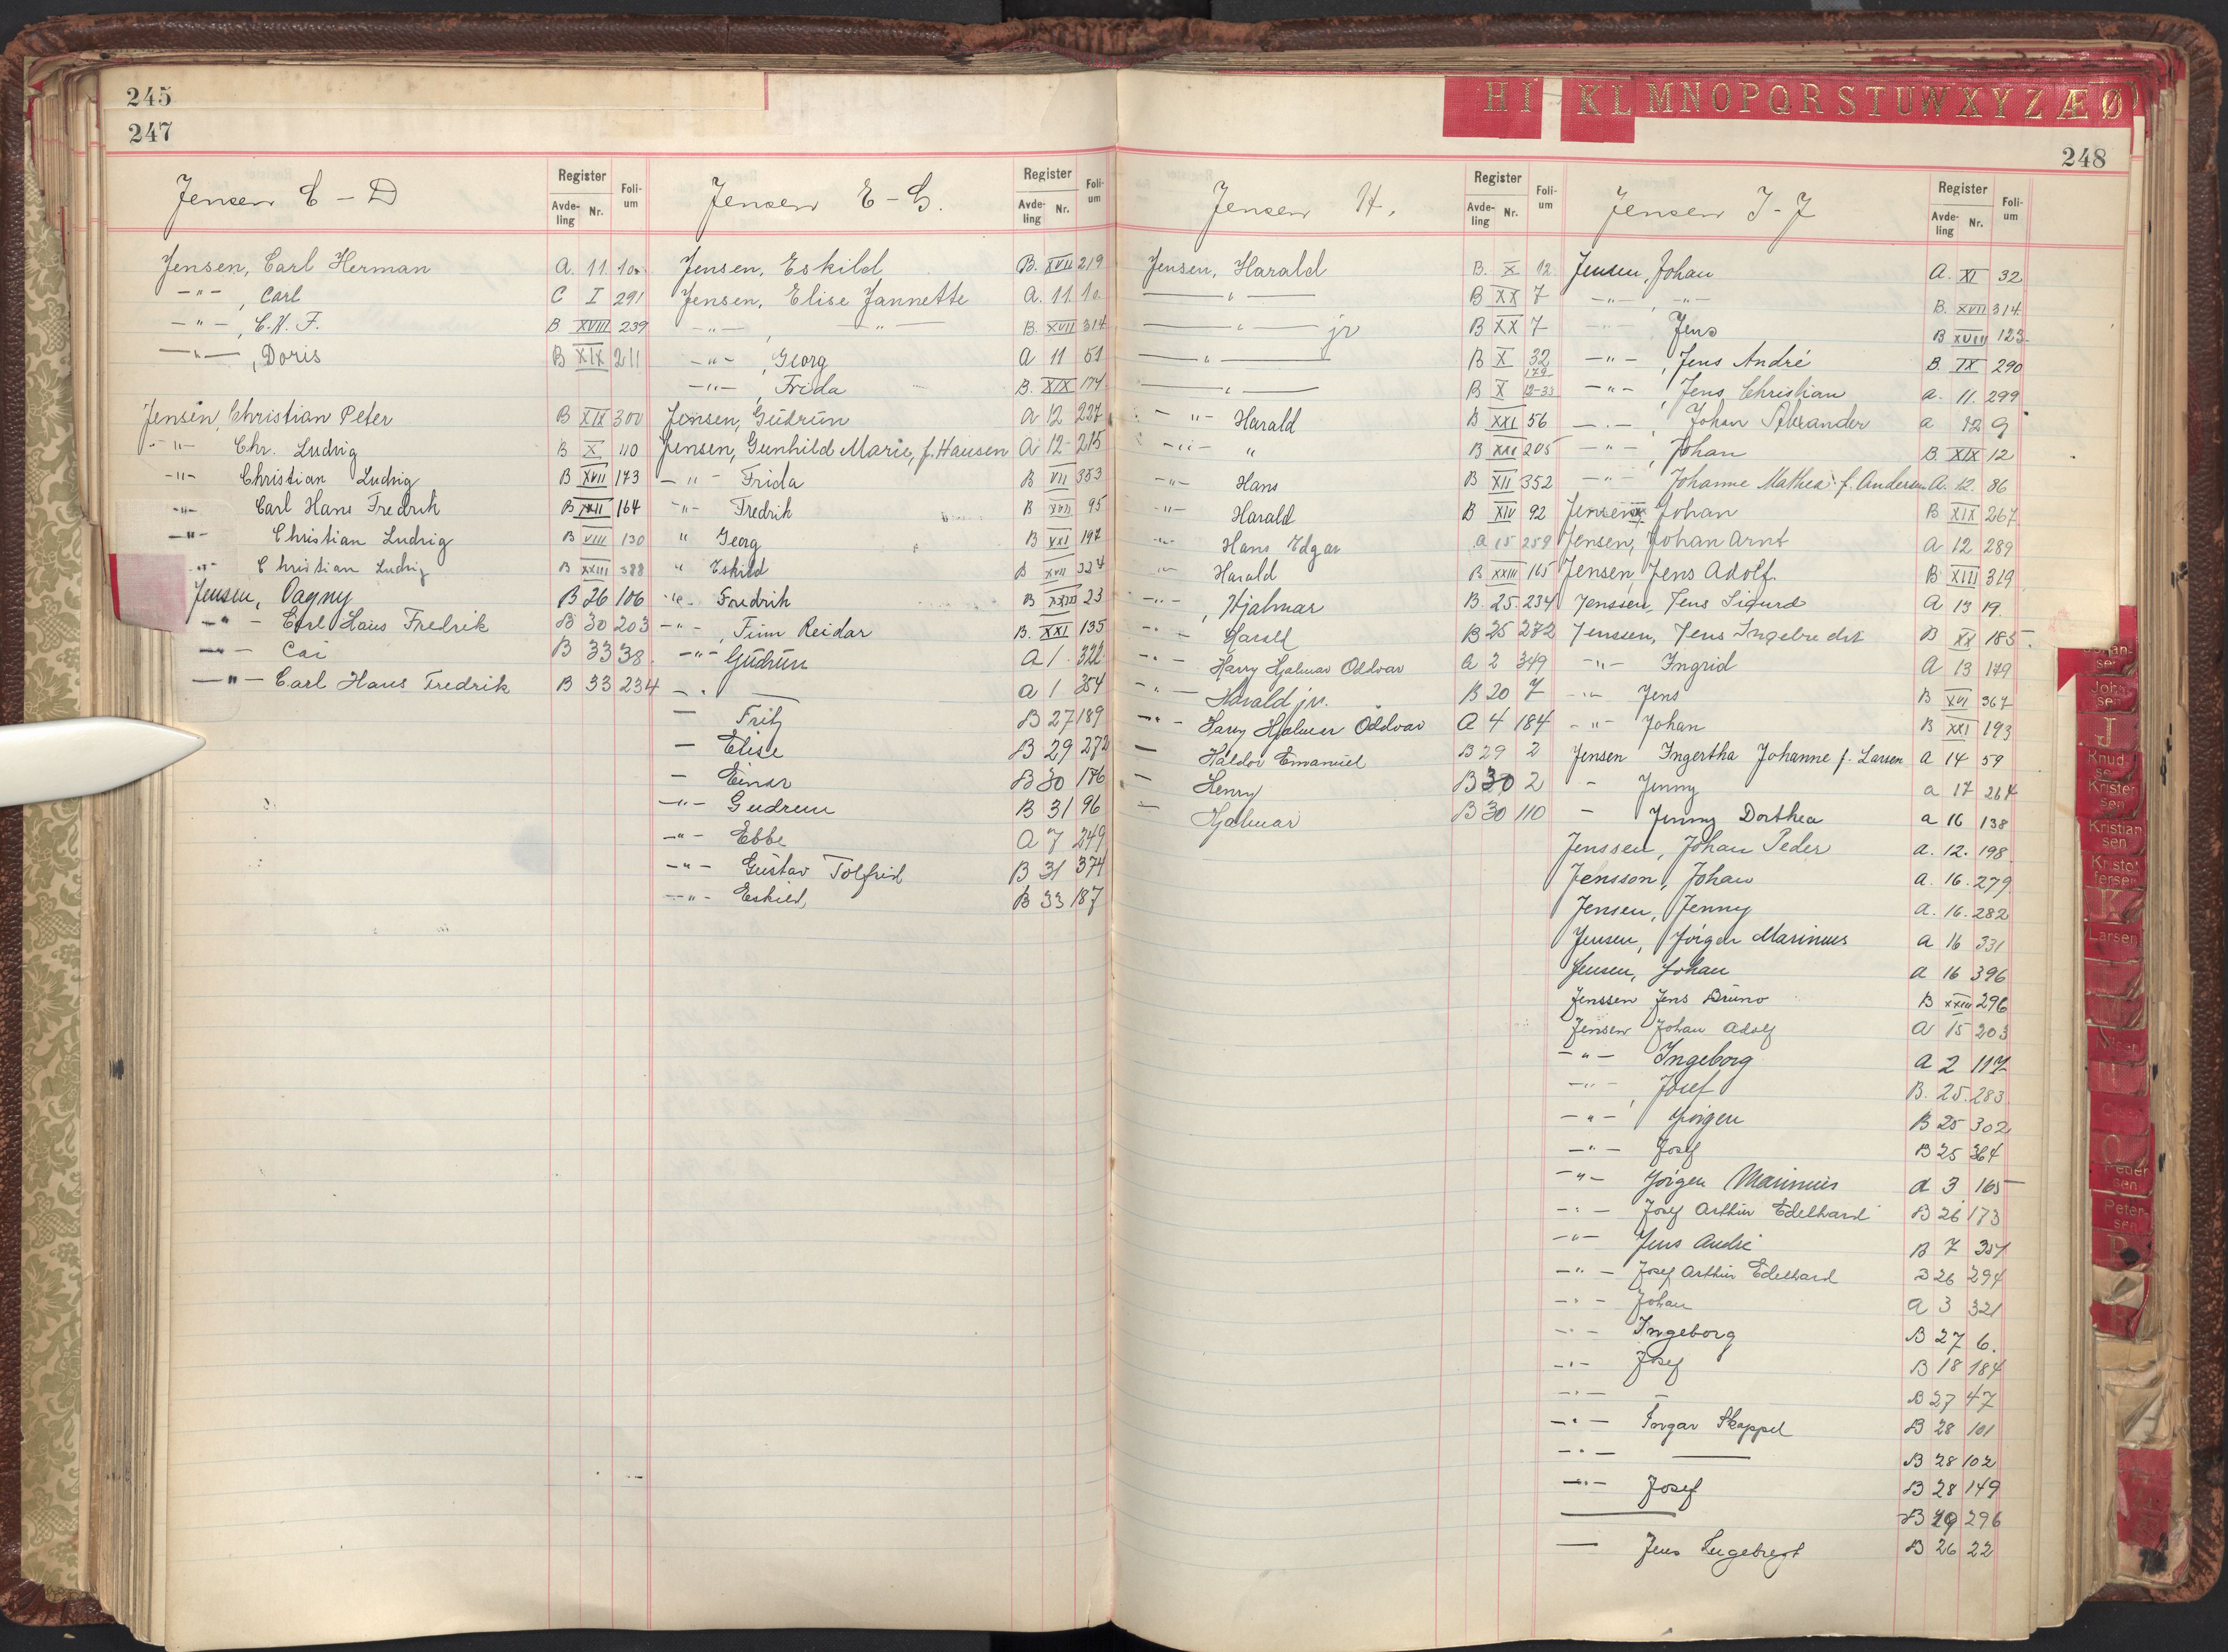 245
247
Jensen C - D
Register
Avde-ling Nr.
Foli-um
Jensen, Carl Herman A. 11. 10.
-"- , Carl C I 291
-"- , C.H.F. B XVIII 239
-"- , Doris B XIX 211
Jensen, Christian Peter B XIX 300
-"- Chr. Ludvig B X 110
-"- Christian Ludvig B XVII 173
-"- Carl Hans Fredrik B XXII 164
-"- Christian Ludvig B VIII 130
-"- Christian Ludvig B XXIII 388
Jensen, Dagny B 26 106
-"- Carl Hans Fredrik B 30 203
-"- Cai B 33 38.
-"- Carl Hans Fredrik B 33 234
Jensen E - G.
Register
Avde-ling Nr.
Foli-um
Jensen, Eskild B. XVII 219
Jensen, Elise Jannette A. 11. 10.
-"- , -"- B. XVII 314
-"- , Georg A 11 51
-"- , Frida B. XIX 174
Jensen, Gudrun A 12 227
Jensen, Gunhild Marie, f. Hansen A 12 215
-"- Frida B VII 353
-"- Fredrik B XVII 95
" Georg B XXI 197
" Eskild B XVII 324
-"- Fredrik B XXIII 23
-"- , Finn Reidar B. XXI 135
-"- Gudrun A 1. 322
-"- — A 1 354
— Fritz B 27 189
— Elise B 29 272
— Einar B 30 176
-"- Gudrun B 31 96
-"- Ebbe A 7 249
-"- Gustav Tolfrid B 31 374
-"- Eskild, B 33 187
H I K L M N O P Q R S T U W X Y Z Æ Ø
248
Jensen H.
Register
Avde-ling Nr.
Foli-um
Jensen, Harald B. X 12
—"— B XX 7
—"— jr B XX 7
—"— B X 32 179
—"— B X 12-33
-"- Harald B XXI 56
-"- " B XXI 205
-"- Hans B XII 352
-"- Harald B XIV 92
-"- Hans Edgar A 15 259
-"- Harald B XXIII 165
-"- , Hjalmar B. 25. 234
-"- Harald B 25 272
-"- Harry Hjalmar Oddvar A 2 349
-"- Harald jr. B 20 7
-"- Harry Hjalmar Oddvar A 4 184
— Haldor Emanuel B 29 2
— Henry B 30 2
— Hjalmar B 30 110
Jensen I - J
Register
Avde-ling Nr.
Foli-um
Jensen, Johan A. XI 32
-"- , -"- B. XVII 314
-"- Jens B XVIII 123
-"- , Jens André B. IX 290
-"- , Jens Christian A. 11. 299
-"- , Johan Alexander A 12 9
-"- , Johan B. XIX 12
-"- Johanne Mathea f. Andersen A. 12. 86
Jensen, Johan B XIX 267
Jensen, Johan Arnt A 12 289
Jensen, Jens Adolf. B XIII 319
Jenssen, Jens Sigurd A 13 19.
Jenssen, Jens Ingebredt B XX 185
-"- Ingrid A 13 179
-"- Jens B XVI 367
-"- Johan B XXI 193
Jensen Ingertha Johanne f. Larsen A 14 59
- Jenny A 17 264
- Jenny Dorthea A 16 138
Jenssen, Johan Peder A. 12. 198
Jensson, Johan A. 16. 279
Jensen, Jenny A. 16. 282
Jensen, Jörgen Marinius A 16 331
Jensen, Johan A 16 396
Jenssen Jens Bruno B XXIII 296
Jensen Johan Adolf A 15 203
-"- Ingeborg A 2 117
-"- , Josef B. 25. 283
-"- Jörgen B 25 302
-"- Josef B 25 364
-"- Jörgen Marinius A 3 165
-"- Josef Arthur Edelhard B 26 173
-"- Jens André B 7 351
-"- Josef Arthur Edelhard B 26 294
-"- Johan A 3 321
-"- Ingeborg B 27 6.
-"- Josef B 18 184
-"- — B 27 47
-"- Skappel B 28 101
-"- — B 28 102
-"- Josef B 28 149
— B 29 296
— Jens Ingebregt B 26 22
Johan-sen
J
Knud-sen
Krister-sen
Kristian-sen
Kristof-fersen
K
Larsen
Peder-sen
Peter-sen